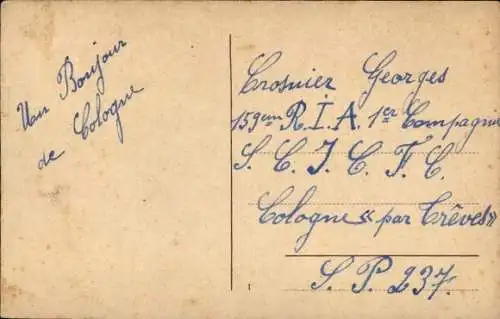 Un Bonjour
de Cologne
Crosnier Georges
159em R.I.A. 1er Compagnie
S. C. J. C. F. C.
Cologne « par Trêves »
S. P. 237.
1